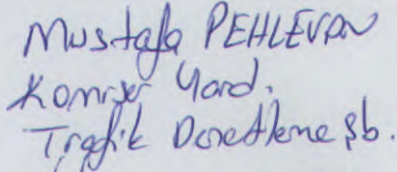 Mustafa PEHLEVAN
Komiser Yard.
Trafik Denetleme şb.